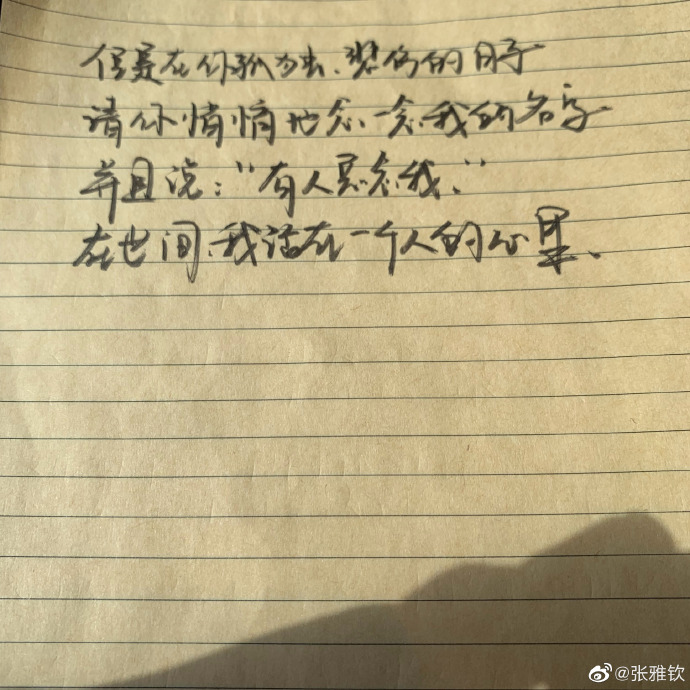 但是在你孤独、悲伤的日子
请你悄悄地念一念我的名字
并且说:“有人思念我、”
在世间、我活在一个人的心里、
@张雅钦